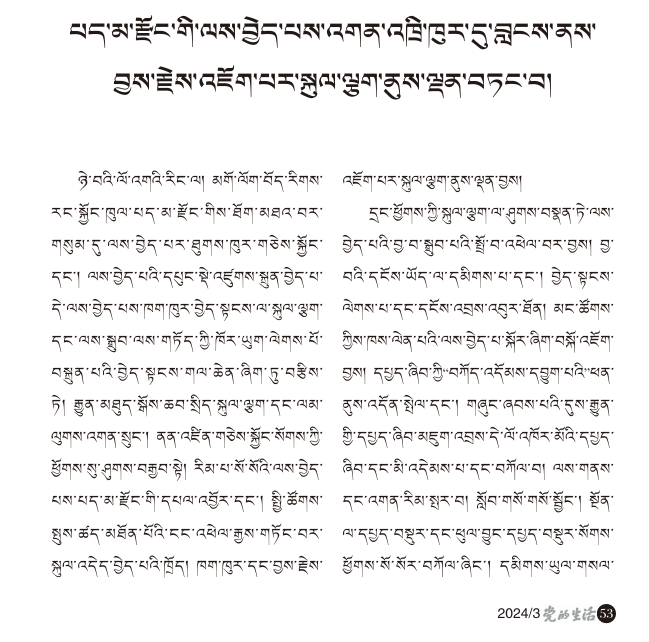 པད་མ་རྫོང་གི་ལས་བྱེད་པས་འགན་འཁྲི་ཁུར་དུ་བླངས་ནས་
བྱས་རྗེས་འཇོག་པར་སྐུལ་ལྕག་ནུས་ལྡན་བཏང་བ།
ཉེ་བའི་ལོ་འགའི་རིང་ལ། མགོ་ལོག་བོད་རིགས་
རང་སྐྱོང་ཁུལ་པད་མ་རྫོང་གིས་ཐོག་མཐའ་བར་
གསུམ་དུ་ལས་བྱེད་པར་ཐུགས་ཁུར་གཅེས་སྐྱོང་
དང་། ལས་བྱེད་པའི་དཔུང་སྡེ་འཛུགས་སྐྲུན་བྱེད་པ་
དེ་ལས་བྱེད་པས་ཁག་ཁུར་བྱེད་སྟངས་ལ་སྐུལ་ལྕག་
དང་ལས་སྒྲུབ་ལས་གཏོད་ཀྱི་ཁོར་ཡུག་ལེགས་པོ་
བསྐྲུན་པའི་བྱེད་སྟངས་གལ་ཆེན་ཞིག་ཏུ་བརྩིས་
ཏེ། རྒྱུན་མཐུད་སྒོས་ཆབ་སྲིད་སྐུལ་ལྕག་དང་ལམ་
ལུགས་འགན་སྲུང་། ནན་འཛིན་གཅེས་སྐྱོང་སོགས་ཀྱི་
ཕྱོགས་སུ་ཤུགས་བརྒྱབ་སྟེ། རིམ་པ་སོ་སོའི་ལས་བྱེད་
པས་པད་མ་རྫོང་གི་དཔལ་འབྱོར་དང་། སྤྱི་ཚོགས་
སྤུས་ཚད་མཐོན་པོའི་ངང་འཕེལ་རྒྱས་གཏོང་བར་
སྐུལ་འདེད་བྱེད་པའི་ཁྲོད། ཁག་ཁུར་དང་བྱས་རྗེས་
འཇོག་པར་སྐུལ་ལྕག་ནུས་ལྡན་བྱས།
དྲང་ཕྱོགས་ཀྱི་སྐུལ་ལྕག་ལ་ཤུགས་བསྣན་ཏེ་ལས་
བྱེད་པའི་བྱ་བ་སྒྲུབ་པའི་སྤྲོ་བ་འཕེལ་བར་བྱས། བྱ་
བའི་དངོས་ཡོད་ལ་དམིགས་པ་དང་། བྱེད་སྟངས་
ལེགས་པ་དང་དངོས་འབྲས་འབུར་ཐོན། མང་ཚོགས་
ཀྱིས་ཁས་ལེན་པའི་ལས་བྱེད་པ་སྐོར་ཞིག་བསྐོ་འཇོག་
བྱས། དཔྱད་ཞིབ་ཀྱི“བཀོད་འདོམས་དབྱུག་པའི”ཕན་
ནུས་འདོན་སྤེལ་དང་། གཞུང་ཞབས་པའི་དུས་རྒྱུན་
གྱི་དཔྱད་ཞིབ་མཇུག་འབྲས་དེ་ལོ་འཁོར་མོའི་དཔྱད་
ཞིབ་དང་མི་འདེམས་པ་དང་བཀོལ་བ། ལས་གནས་
དང་འགན་རིམ་སྤར་བ། སློབ་གསོ་གསོ་སྦྱོང་། སྔོན་
ལ་དཔྱད་བསྡུར་དང་ཕུལ་བྱུང་དཔྱད་བསྡུར་སོགས་
ཕྱོགས་སོ་སོར་བཀོལ་ཞིང་། དམིགས་ཡུལ་གསལ་
2024/3 党的生活 53